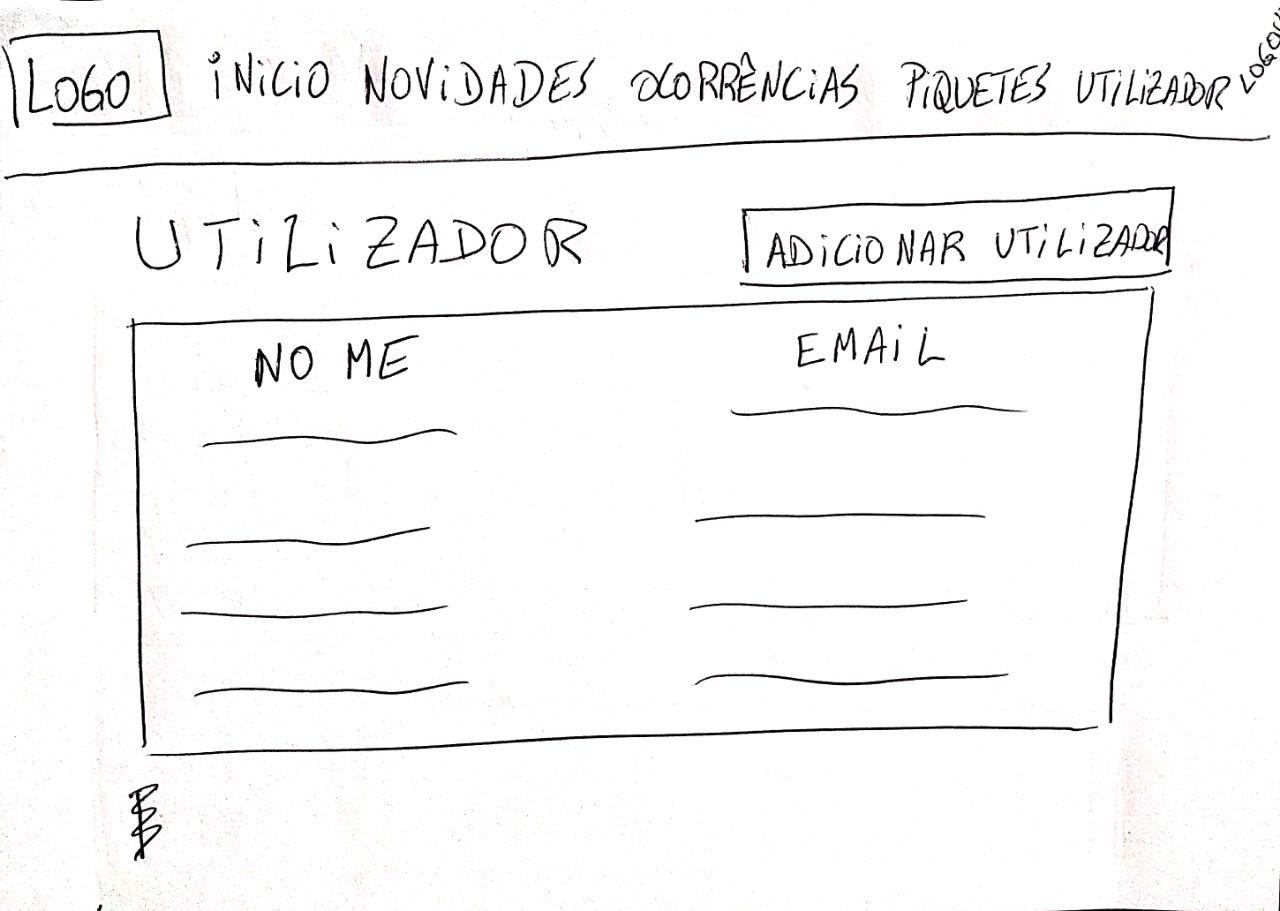 LOGO iNiCiO NOViDADES OCORRÊNCiAS PiQUETES UTiLiZADOR
UTiLiZADOR
ADiCiONAR UTiLiZADOR
NOME EMAiL